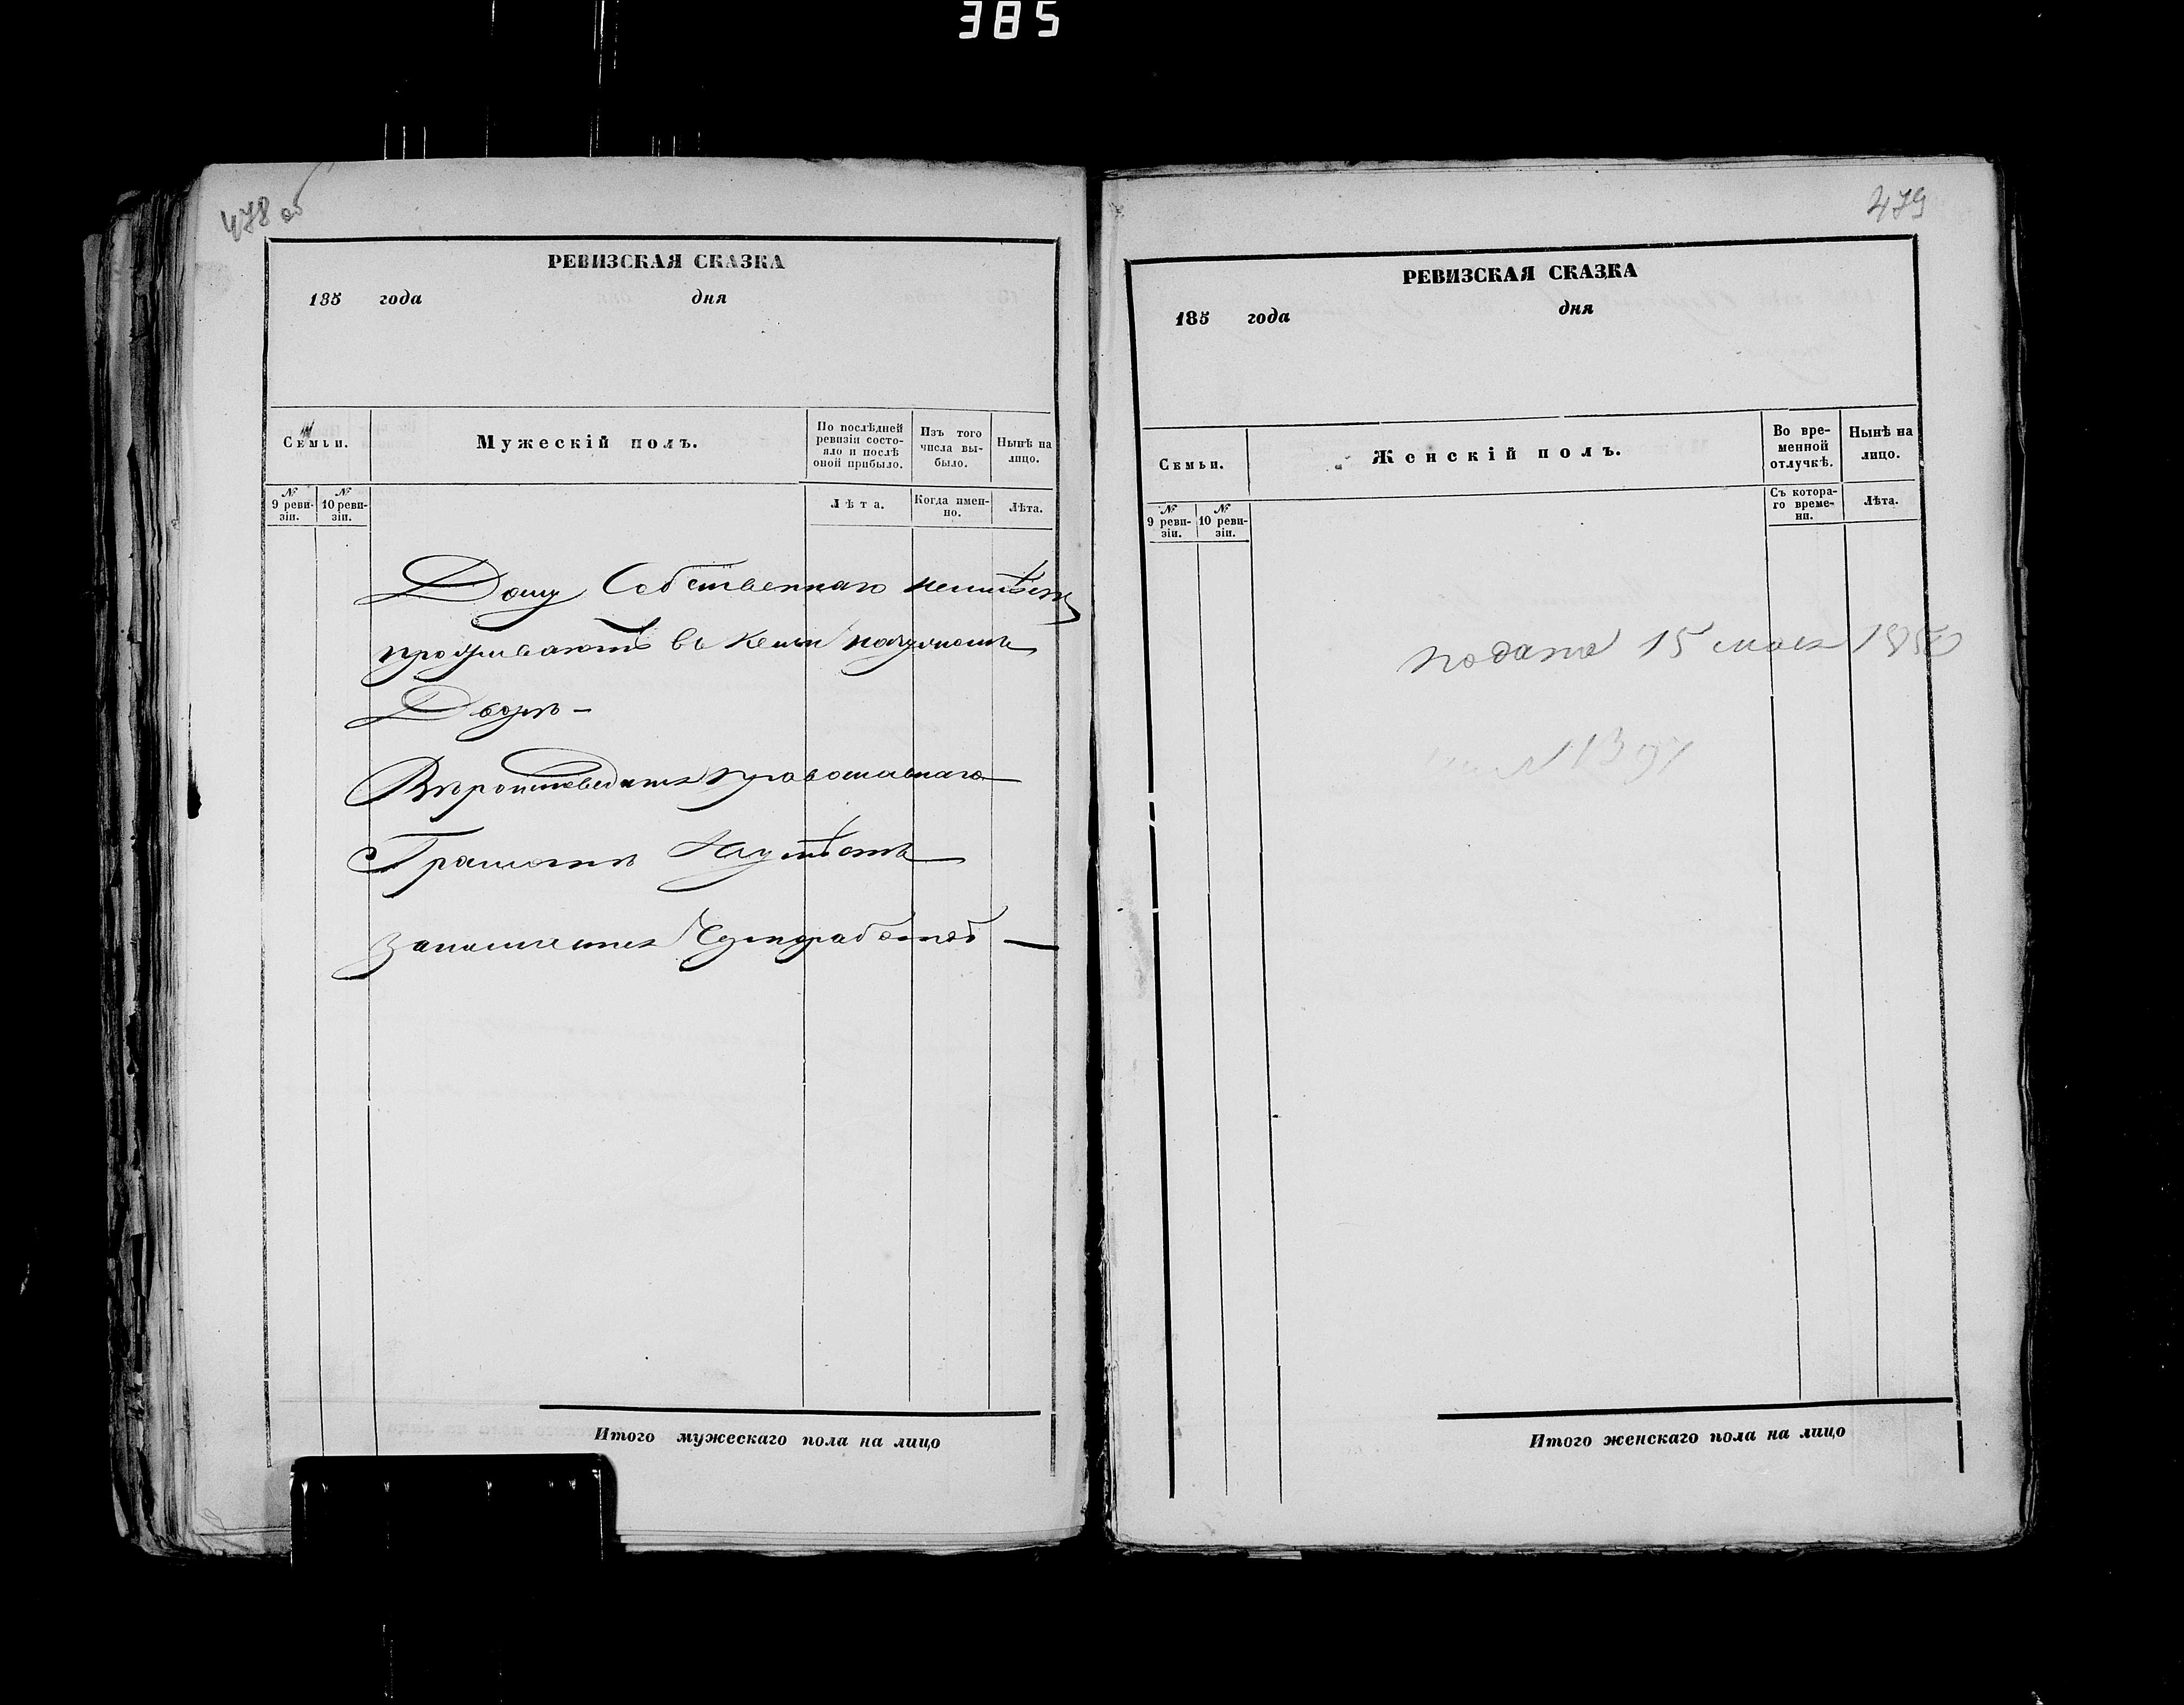 385
478 об
РЕВИЗСКАЯ СКАЗКА
185 года дня
Семьи.
Мужескій полъ.
По послѣдней ревизіи состояло и послѣ оной прибыло.
Изъ того числа выбыло.
Нынѣ на лицо.
№ 9 ревизіи.
№ 10 ревизіи.
Лѣта.
Когда именно.
Лѣта.
Дому Собственнаго неимѣетъ
проживаютъ въ
Дворѣ —
Вѣроисповеданія православнаго
Грамотѣ неумѣетъ
занимается Чернорабочей —
Итого мужескаго пола на лицо
479
РЕВИЗСКАЯ СКАЗКА
185 года дня
Семьи.
Женскій полъ.
Во временной отлучкѣ.
Нынѣ на лицо.
№ 9 ревизіи.
№ 10 ревизіи.
Съ котораго времени.
Лѣта.
подана 15 мая 1858
№ 1397
Итого женскаго пола на лицо